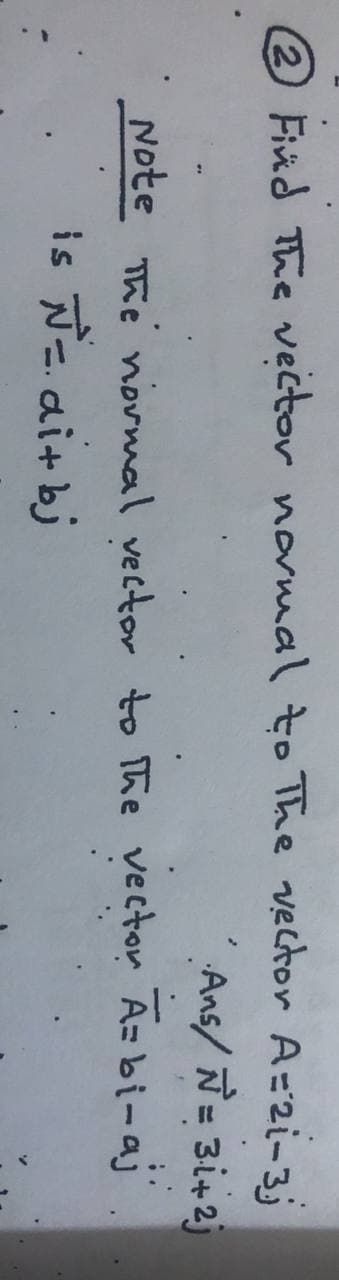 ② Find The vector normal to The vector A=2i-3j
Ans/ N⃗ = 3i+2j
Note The normal vector to The vector A̅=bi-aj
is N⃗ = ai+bj